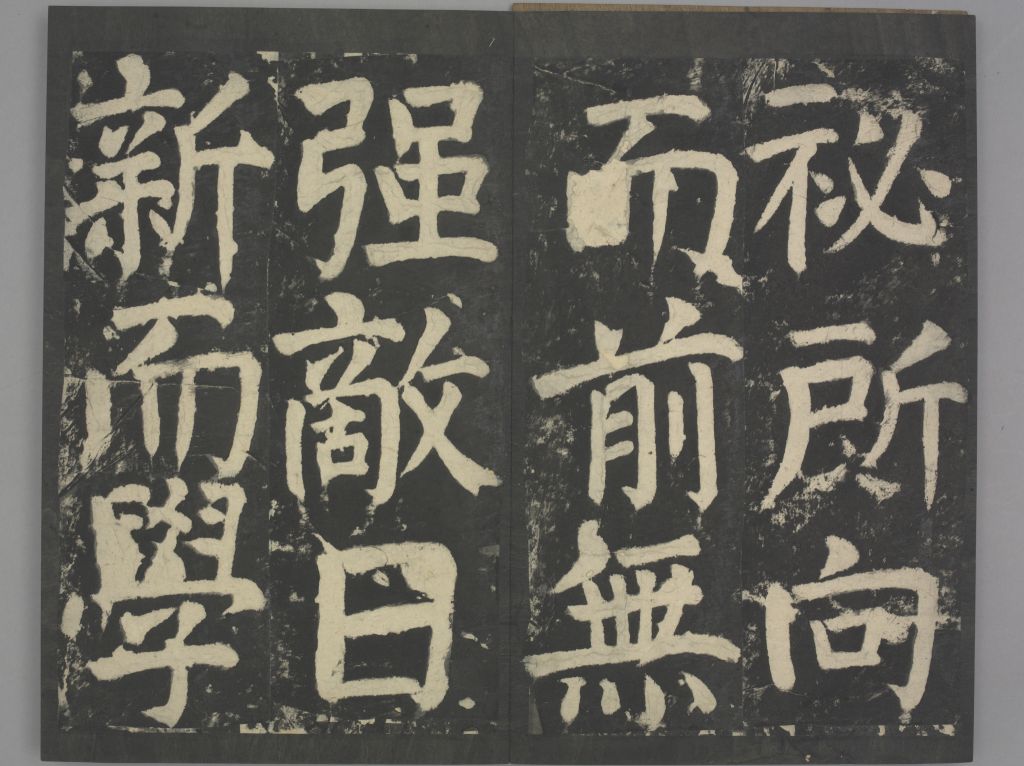 祕所向
而前無
强敵日
新而學